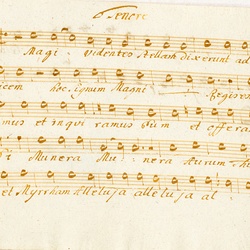 Tenore
Magi. videntes stellam dixerunt ad
icem hoc signum Magni Regis est
mus et inqui ramus eum et offera
Munera Mu: nera Aurum
et Myrrham Alleluja alleluja al: